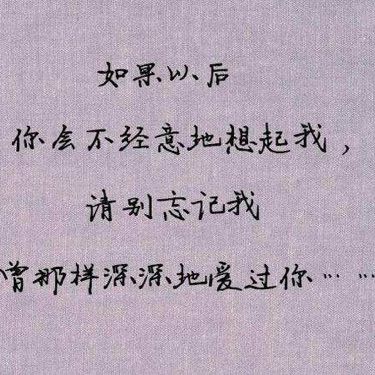 如果以后
你会不经意地想起我，
请别忘记我
曾那样深深地爱过你……